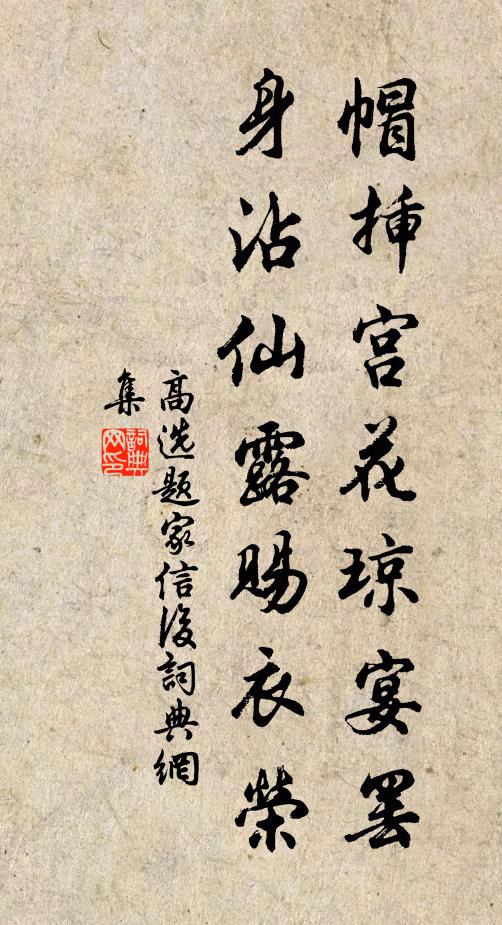 帽挿宫花琼宴罢
身沾仙露赐衣荣
高选题家信後詞典網
集
詞典网印